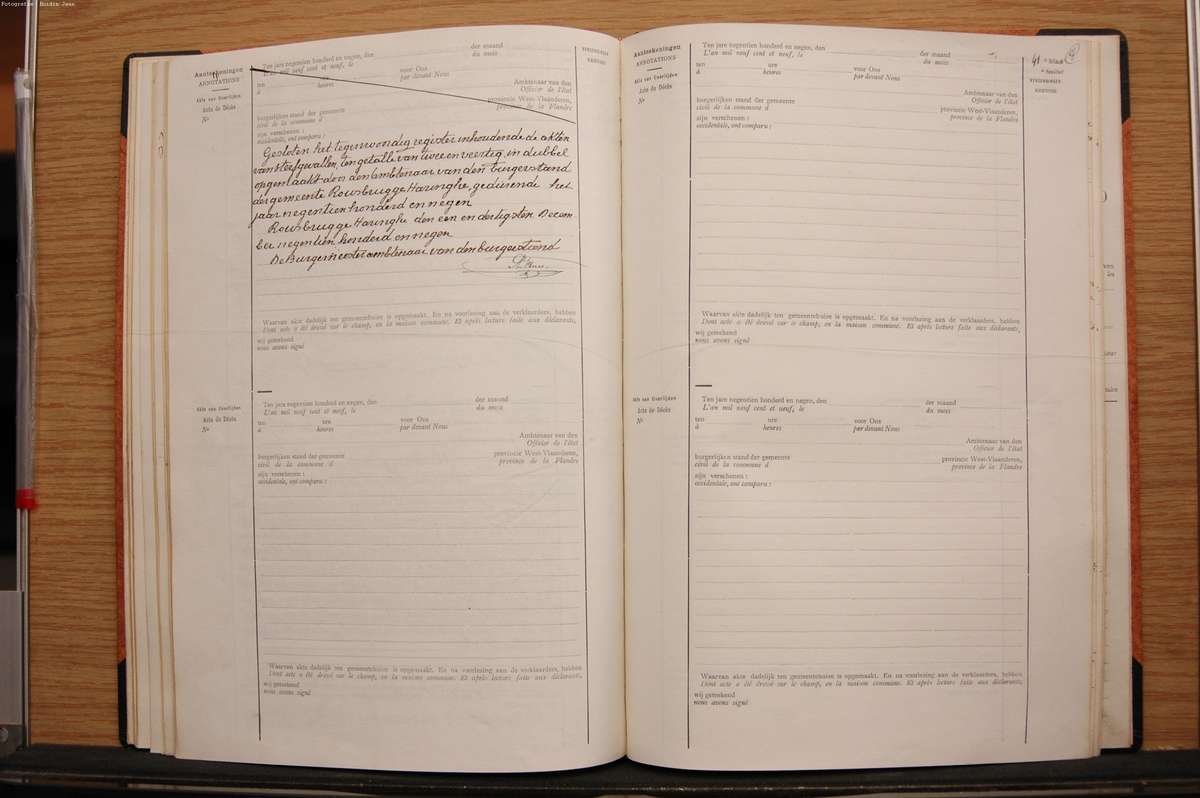 Fotografie : Boidin Jean
Aanteekeningen
ANNOTATIONS
Akte van Overlijden
Acte de Décès
No
Ten jare negentien honderd en negen, den der maand
L'an mil neuf cent et neuf, le du mois
ten ure voor Ons
à heures par devant Nous
Ambtenaar van den
Officier de l'état
burgerlijken stand der gemeente provincie West-Vlaanderen,
civil de la commune d province de la Flandre
zijn verschenen :
occidentale, ont comparu :
Gesloten het tegenwoordig register inhoudende de akten
van sterfgevallen, ten getalle van twee en veertig, in dubbel
opgemaakt door den ambtenaar van den burgerstand
der gemeente Rousbrugge Haringhe, gedurende het
jaar negentien honderd en negen
Rousbrugge Haringhe den een en dertigsten Decem
ber negentien honderd en negen
De Burgemeester ambtenaar van den burgerstand
Waarvan akte dadelijk ten gemeentehuize is opgemaakt. En na voorlezing aan de verklaarders, hebben
Dont acte a été dressé sur le champ, en la maison commune. Et après lecture faite aux déclarants,
wij geteekend
nous avons signé
Akte van Overlijden
Acte de Décès
No
Ten jare negentien honderd en negen, den der maand
L'an mil neuf cent et neuf, le du mois
ten ure voor Ons
à heures par devant Nous
Ambtenaar van den
Officier de l'état
burgerlijken stand der gemeente provincie West-Vlaanderen,
civil de la commune d province de la Flandre
zijn verschenen :
occidentale, ont comparu :
Waarvan akte dadelijk ten gemeentehuize is opgemaakt. En na voorlezing aan de verklaarders, hebben
Dont acte a été dressé sur le champ, en la maison commune. Et après lecture faite aux déclarants,
wij geteekend
nous avons signé
Aanteekeningen
ANNOTATIONS
Akte van Overlijden
Acte de Décès
No
Ten jare negentien honderd en negen, den der maand
L'an mil neuf cent et neuf, le du mois
ten ure voor Ons
à heures par devant Nous
Ambtenaar van den
Officier de l'état
burgerlijken stand der gemeente provincie West-Vlaanderen,
civil de la commune d province de la Flandre
zijn verschenen :
occidentale, ont comparu :
41e blad
e feuillet
Waarvan akte dadelijk ten gemeentehuize is opgemaakt. En na voorlezing aan de verklaarders, hebben
Dont acte a été dressé sur le champ, en la maison commune. Et après lecture faite aux déclarants,
wij geteekend
nous avons signé
Akte van Overlijden
Acte de Décès
No
Ten jare negentien honderd en negen, den der maand
L'an mil neuf cent et neuf, le du mois
ten ure voor Ons
à heures par devant Nous
Ambtenaar van den
Officier de l'état
burgerlijken stand der gemeente provincie West-Vlaanderen,
civil de la commune d province de la Flandre
zijn verschenen :
occidentale, ont comparu :
Waarvan akte dadelijk ten gemeentehuize is opgemaakt. En na voorlezing aan de verklaarders, hebben
Dont acte a été dressé sur le champ, en la maison commune. Et après lecture faite aux déclarants,
wij geteekend
nous avons signé